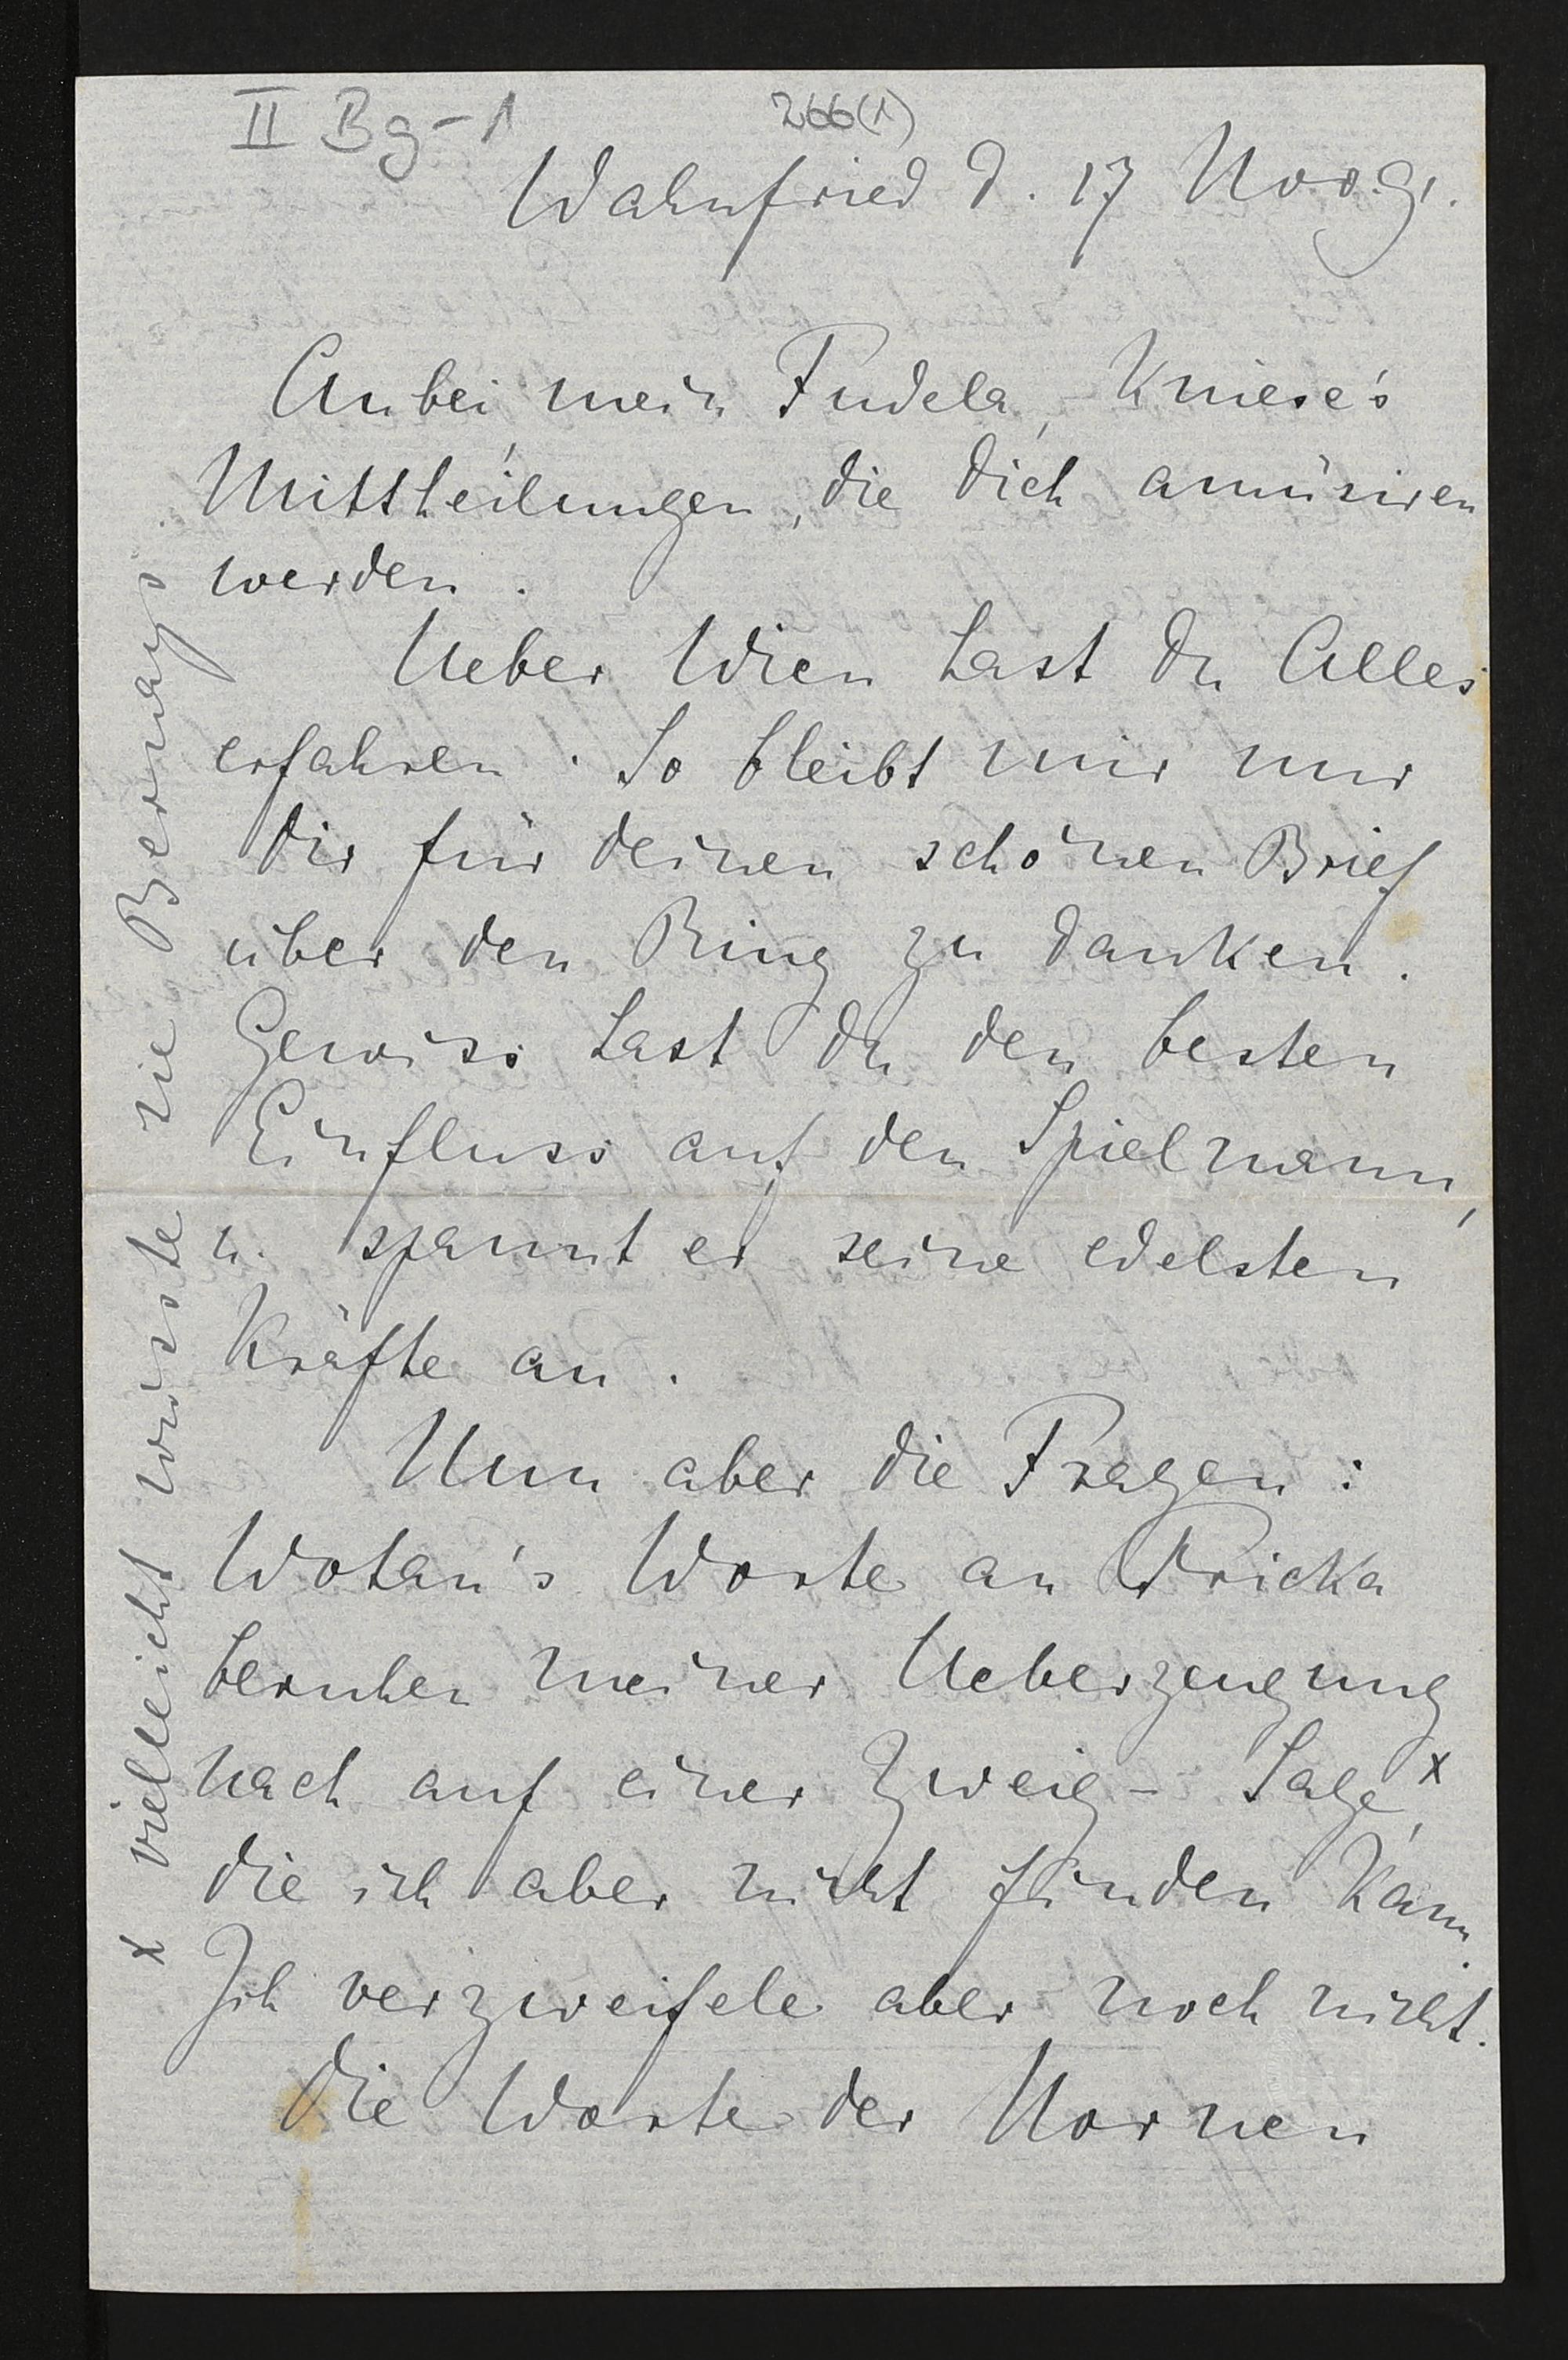 II Bg-1
266(1)
Wahnfried d. 17 Nov 91.
Anbei mein Fidela, Kniese's
Mittheilungen, die dich amüsiren
werden.
Ueber Wien hast du Alles
erfahren. So bleibt mir nur
dir für deinen schönen Brief
über den Ring zu danken.
Gewiss hast du den besten
Einfluss auf den Spielmann,
u. spannt er seine edelsten
Kräfte an.
Nun aber die Fragen:
Wotan's Worte an Fricka
beruhen meiner Ueberzeugung
nach auf einer Zweig-Sage x,
die ich aber nicht finden kann
Ich verzweifele aber noch nicht.
Die Worte der Nornen
x vielleicht wüsste sie Bernays.